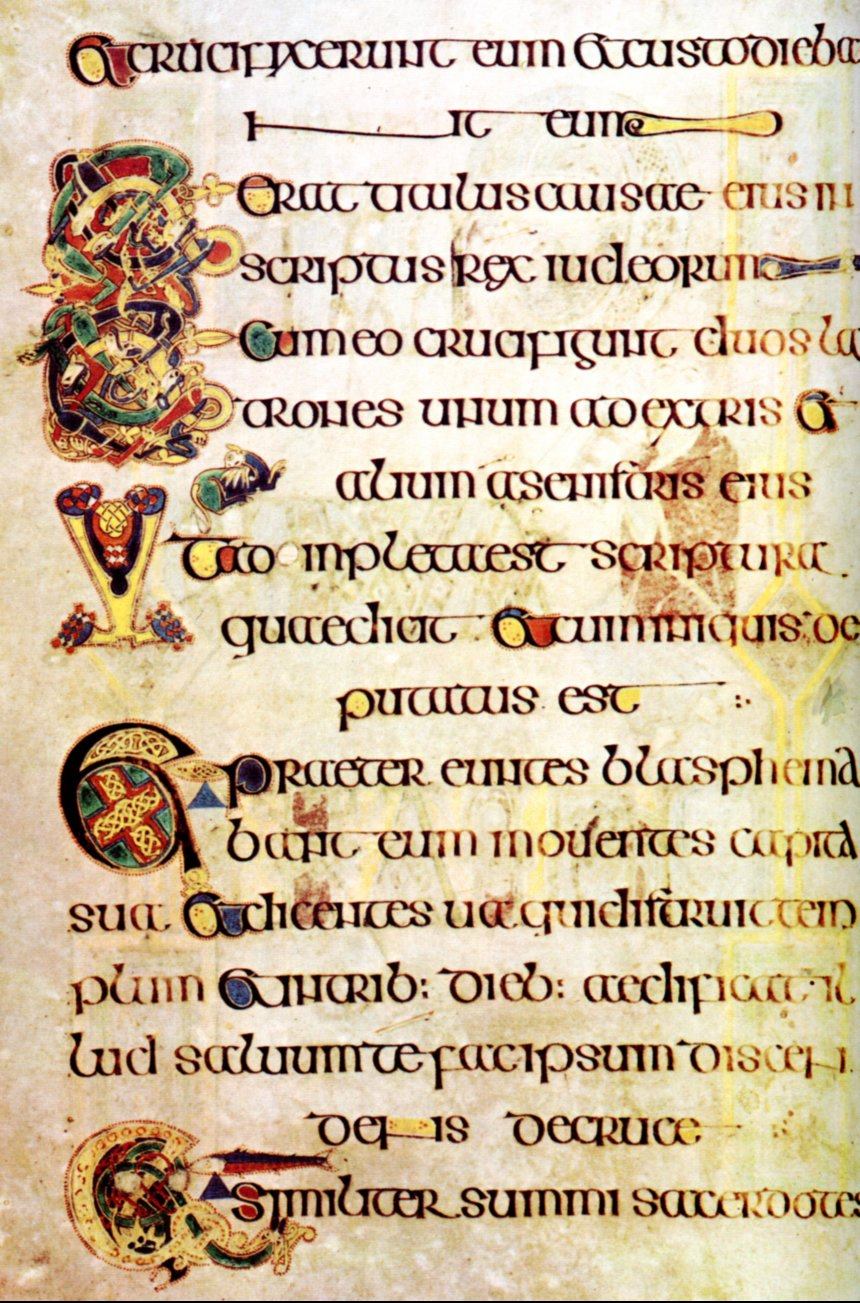 Et crucifixcerunt eum et custodieba
nt eum
Et erat titulus causae eius in
scriptus rex iudeorum
Et cum eo crucifigunt duos la
trones unum ad extris et
alium asenistris eius
Ut ad inpleta est scriptura
quae dicit et cum iniquis de
putatus est
Et praeter euntes blasphema
bant eum mouentes capita
sua et dicentes ua qui distruit tem
plum et in trib: dieb: aedificat il
lud saluum te fac ipsum discen
dens de cruce
Et similiter summi sacerdotes